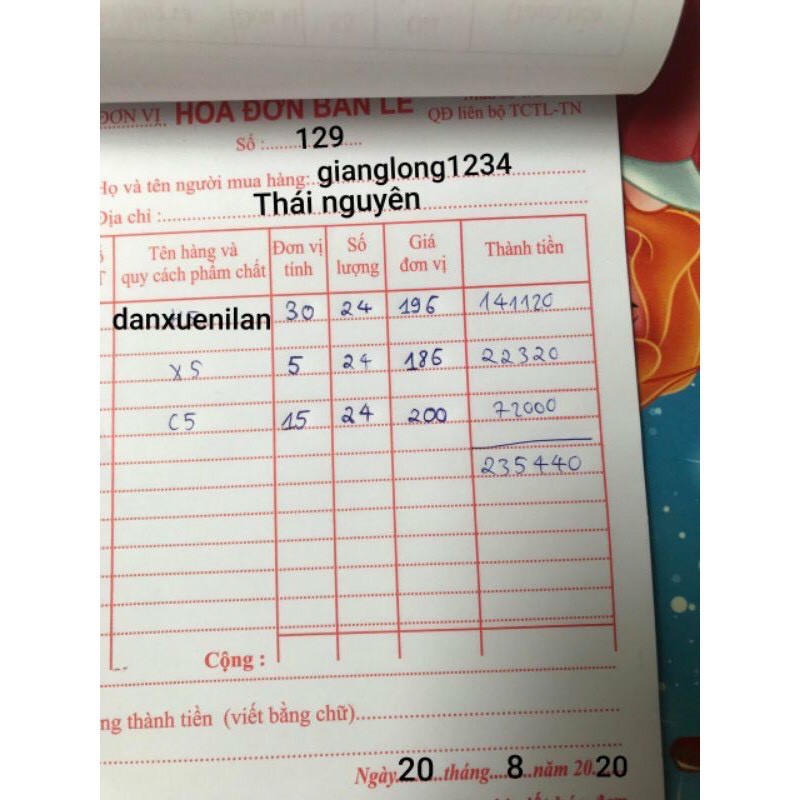 ĐƠN VỊ HÓA ĐƠN BÁN LẺ
QĐ liên bộ TCTL-TN
Số :..........129......
Họ và tên người mua hàng:..gianglong1234
Địa chỉ :..............Thái nguyên
Tên hàng và quy cách phẩm chất Đơn vị tính Số lượng Giá đơn vị Thành tiền
danxuenilan 30 24 196 141120
X5 5 24 186 22320
C5 15 24 200 72000
235440
Cộng :
ng thành tiền (viết bằng chữ)
Ngày 20 tháng 8 năm 20 20